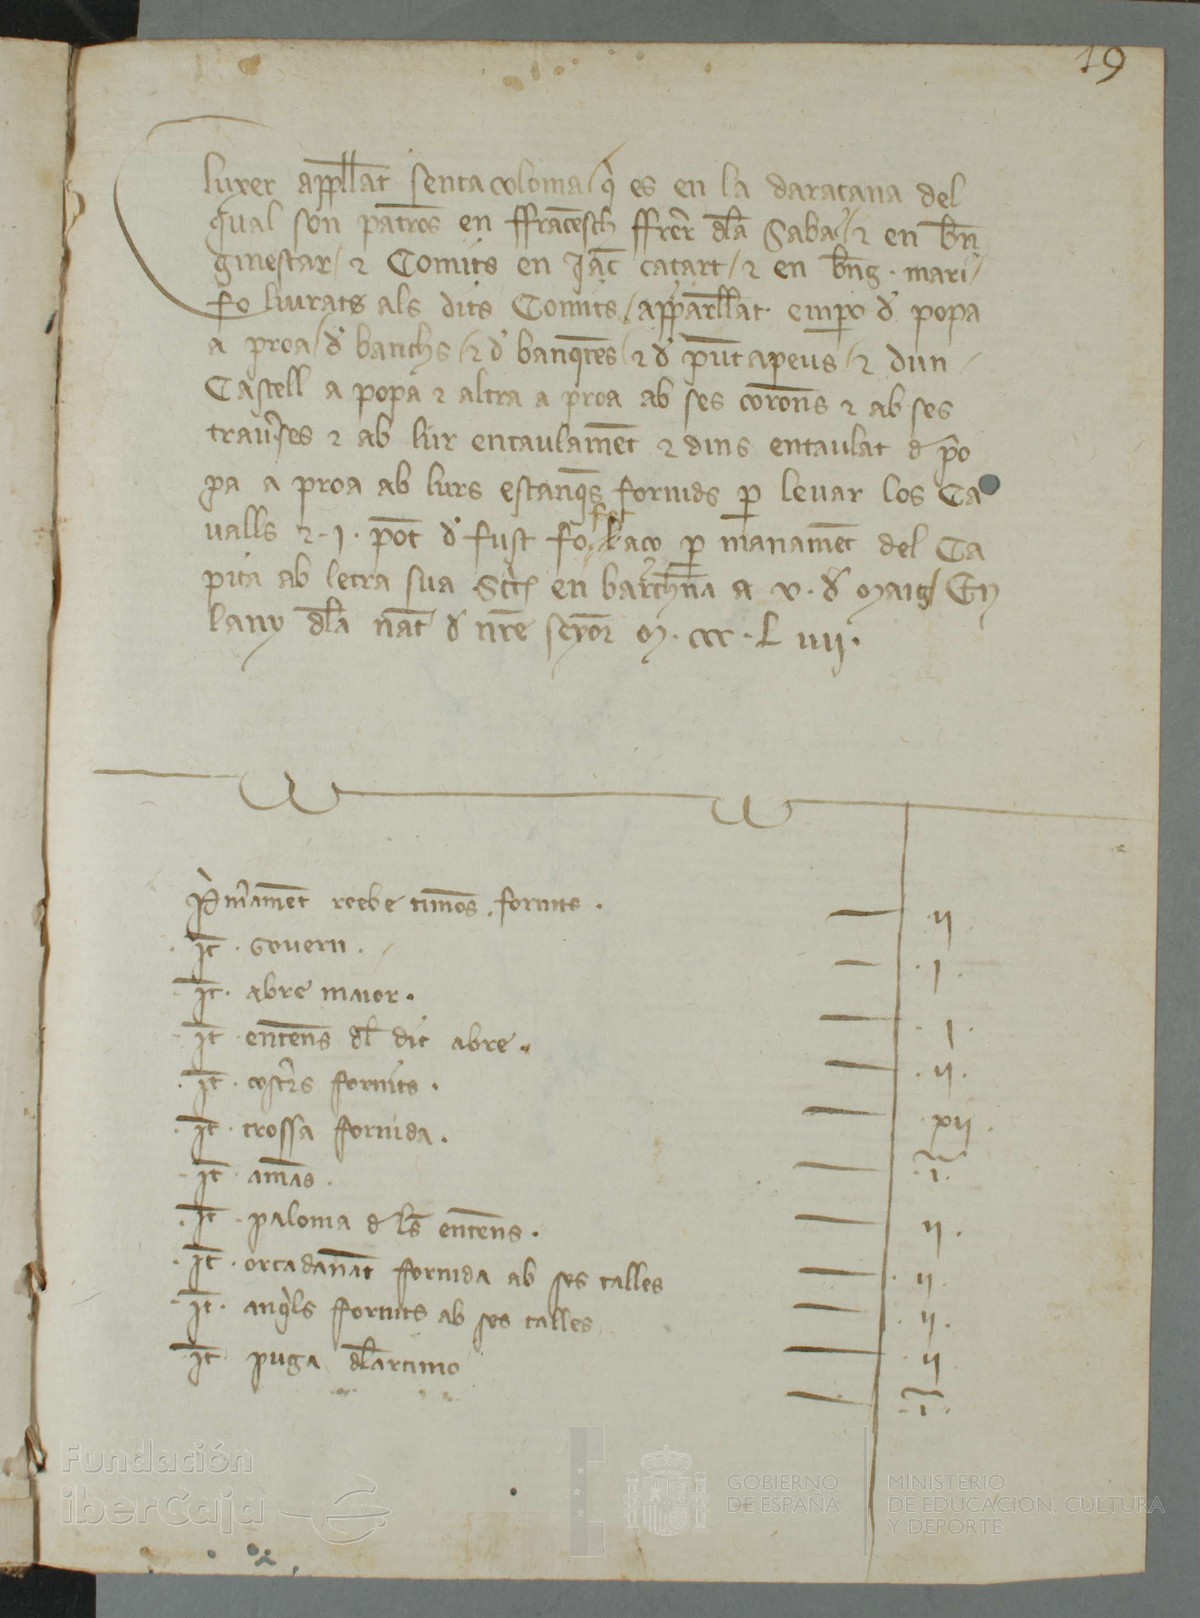 19
luxer appllat senta coloma / q es en la daraçana del
qual son patrons en ffrancesch ffrer dla Saba / & en bñ
ginestar / & Comits en Jac catart / & en bng · mari /
fo liurats als dits Comits / apparllat empo d popa
a proa / d banchs / & d banqtes / & d puntapeus / & dun
Castell a popa & altra a proa ab ses corons & ab ses
trauses & ab lur entaulament & dins entaulat d po
pa a proa ab lurs estanqs fornids p leuar los Ca
ualls & · I · pont d fust fo fet aço p manament del Ca
pita ab letra sua Scta en barchna a v · d maig / En
lany dla nat d nre senyor M · CCC · L iiii ·
Primament reebe timons fornits · ii
It · gouern · · i ·
It · abre maior · · i ·
It · entens dl dit abre · · ii ·
It · costrs fornits · · xii ·
It · trossa fornida · · i ·
It · amans · ii ·
It · paloma d ls entens · · ii ·
It · orcadanant fornida ab ses talles · ii ·
It · anqls fornits ab ses talles · ii
It · puga dlartimo · i ·
Fundación
iberCaja
GOBIERNO
DE ESPAÑA
MINISTERIO
DE EDUCACIÓN, CULTURA
Y DEPORTE